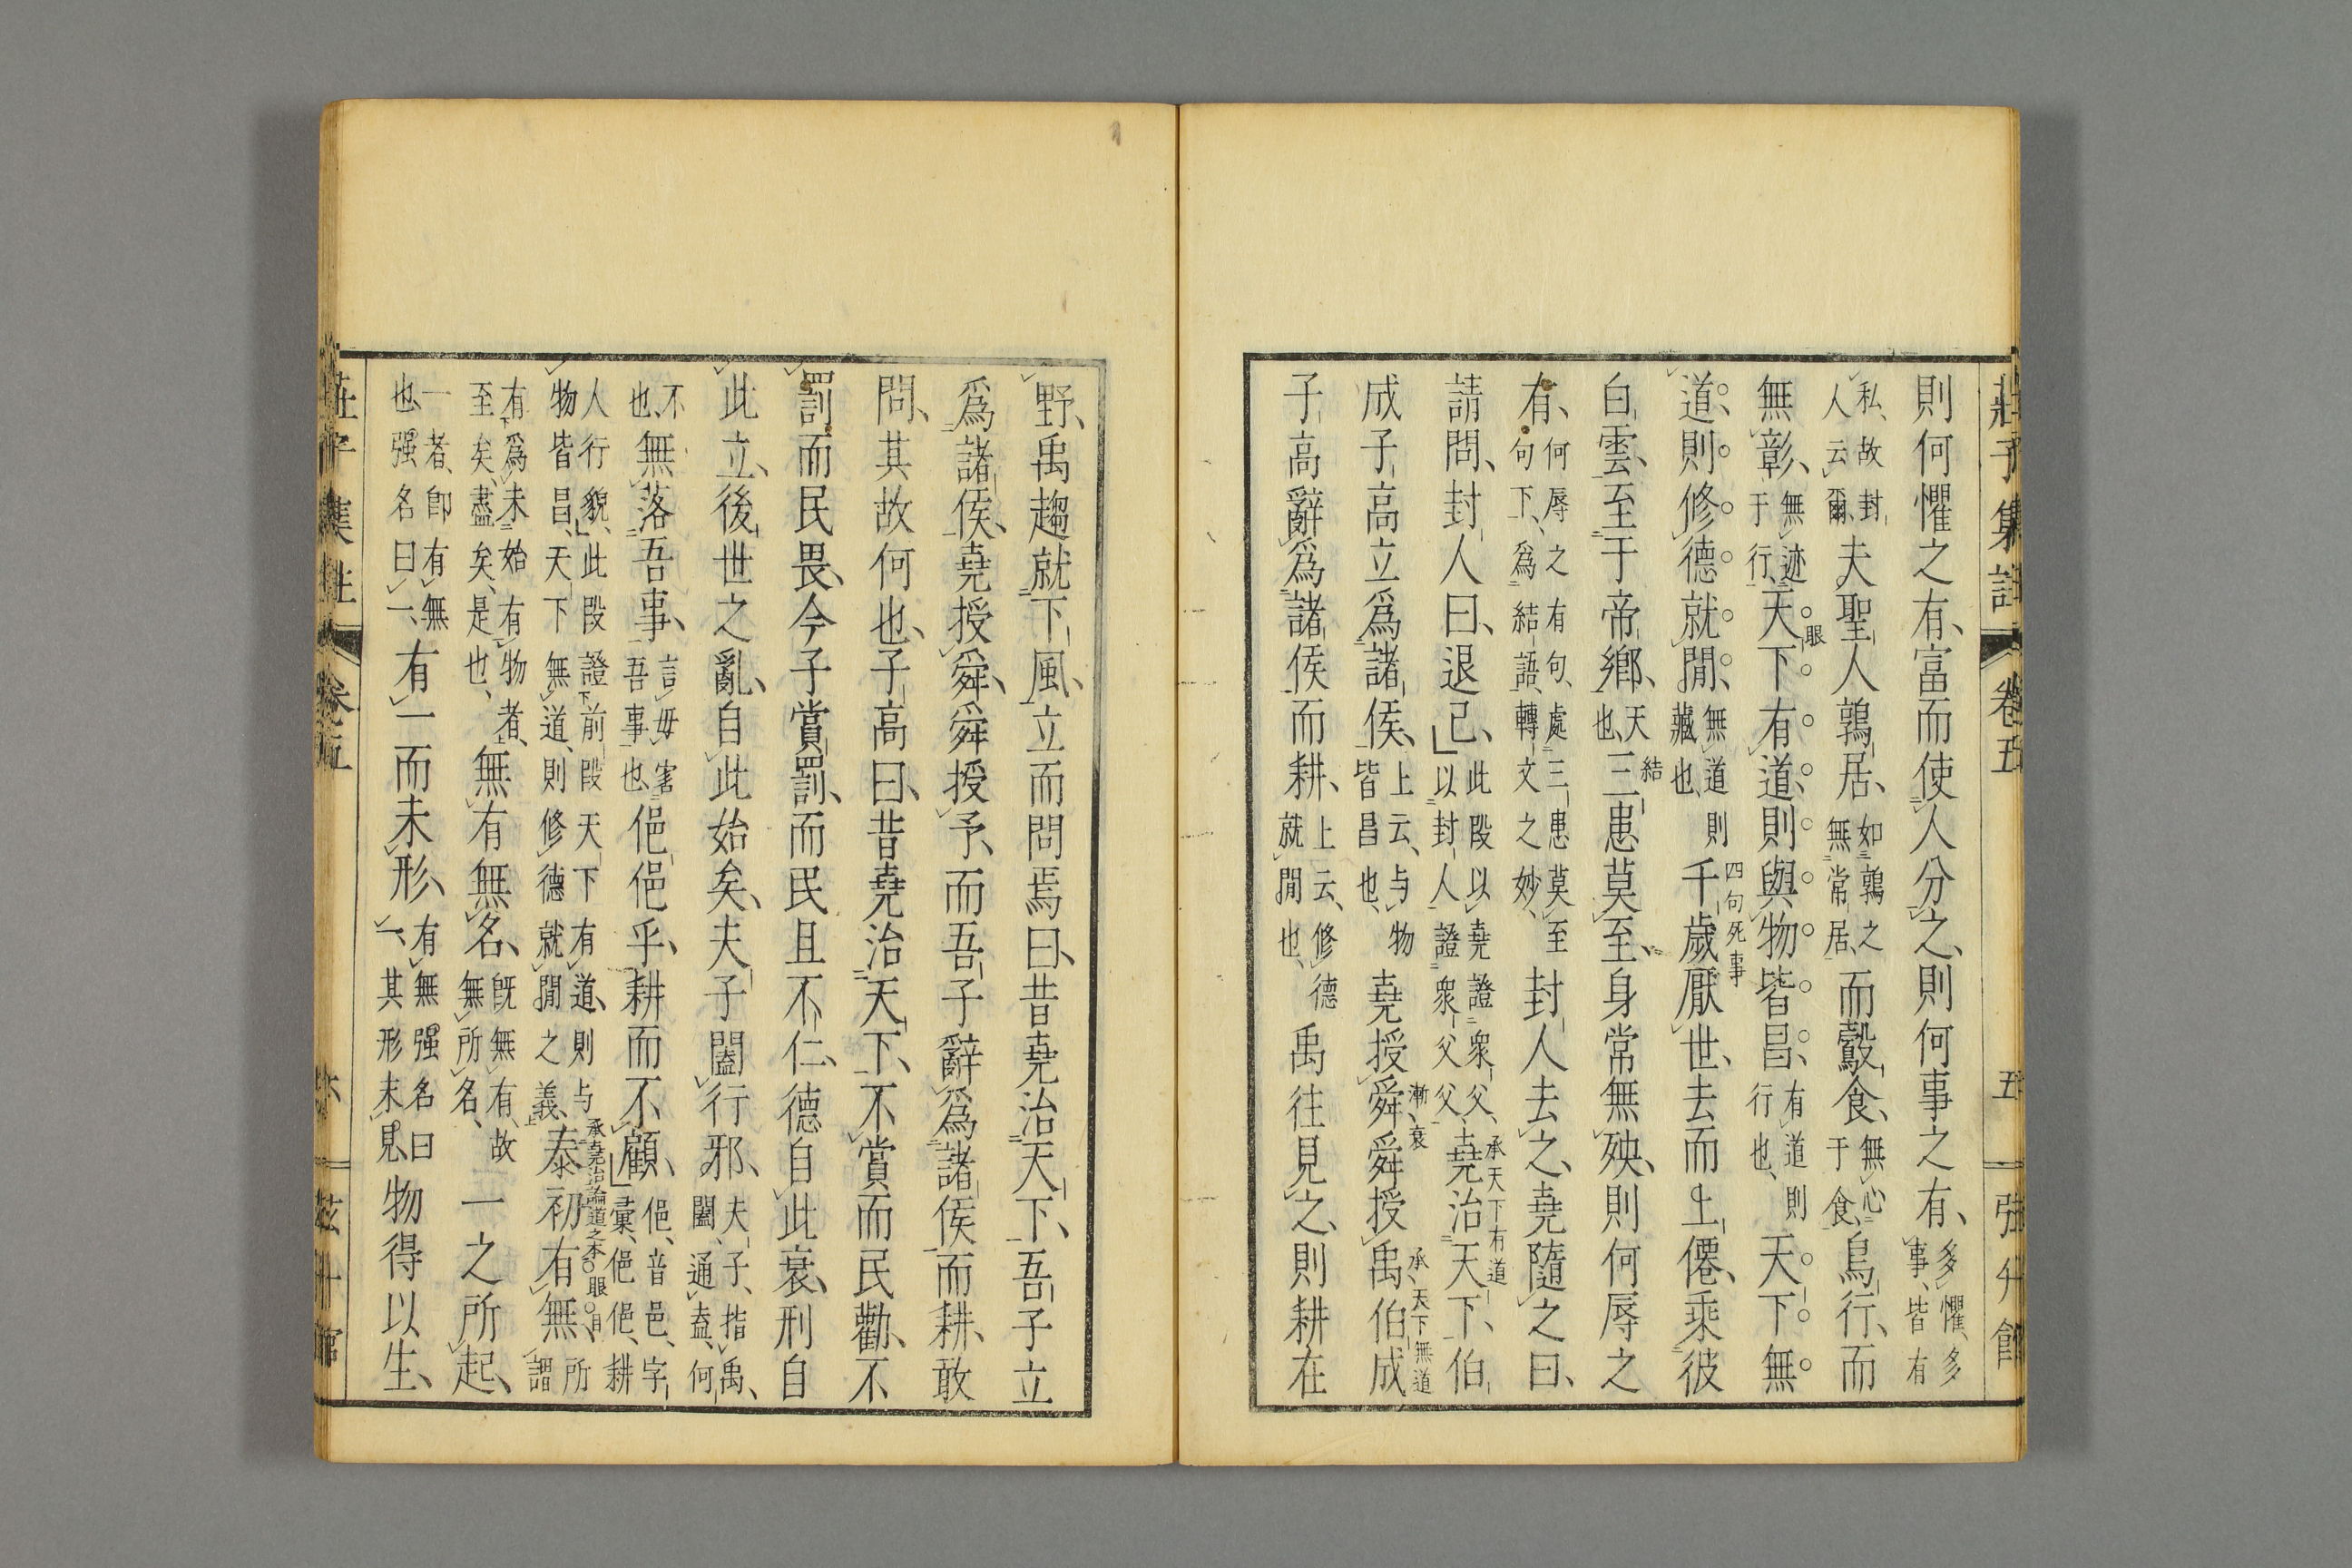 莊子集註 卷五 五 弦升館
則何懼之有、富而使人分之、則何事之有、多懼、多事、皆有
私、故封人云爾、夫聖人鶉居、如鶉之無常居、而鷇食、無心于食、鳥行、而
無彰、無迹于行、天下有道、則與物皆昌、有道則行也、天下無
眼
道、則修德就閒、無道則藏也、千歲厭世、去而上僊、乘彼
四句死事
白雲、至于帝鄉、天也、三患莫至、身常無殃、則何辱之
結
有、何辱之有句、處三患莫至句下、爲結語、轉文之妙、封人去之、堯隨之曰、
請問、封人曰、退已、此段以堯證衆父、以封人證衆父父、堯治天下、伯
承天下有道
成子高立爲諸侯、上云、与物皆昌也、堯授舜舜授禹伯成
漸衰 承天下無道
子高辭爲諸侯而耕、上云、修德就閒也、禹往見之、則耕在
野、禹趨就下風、立而問焉曰、昔堯治天下、吾子立
爲諸侯、堯授舜、舜授予、而吾子辭爲諸侯而耕、敢
問、其故何也、子高曰、昔堯治天下、不賞而民勸、不
罰而民畏、今子賞罰、而民且不仁、德自此衰、刑自
此立、後世之亂、自此始矣、夫子闔行邪、夫子、指禹、闔、通盍、何
不也、無落吾事、言毋害吾事也、俋俋乎、耕而不顧、俋、音邑、字彙、俋俋、耕
人行貌、此段證前段天下有道、則与物皆昌、天下無道、則修德就閒之義、泰初有無、所謂
承堯治論道之本 眼目
有爲未始有物者、至矣、盡矣、是也、無有無名、旣無有、故無所名、一之所起、
一者、卽有無也、强名曰一、有一而未形、有無强名曰一、其形未見、物得以生、
莊子集註 卷五 六 弦升館